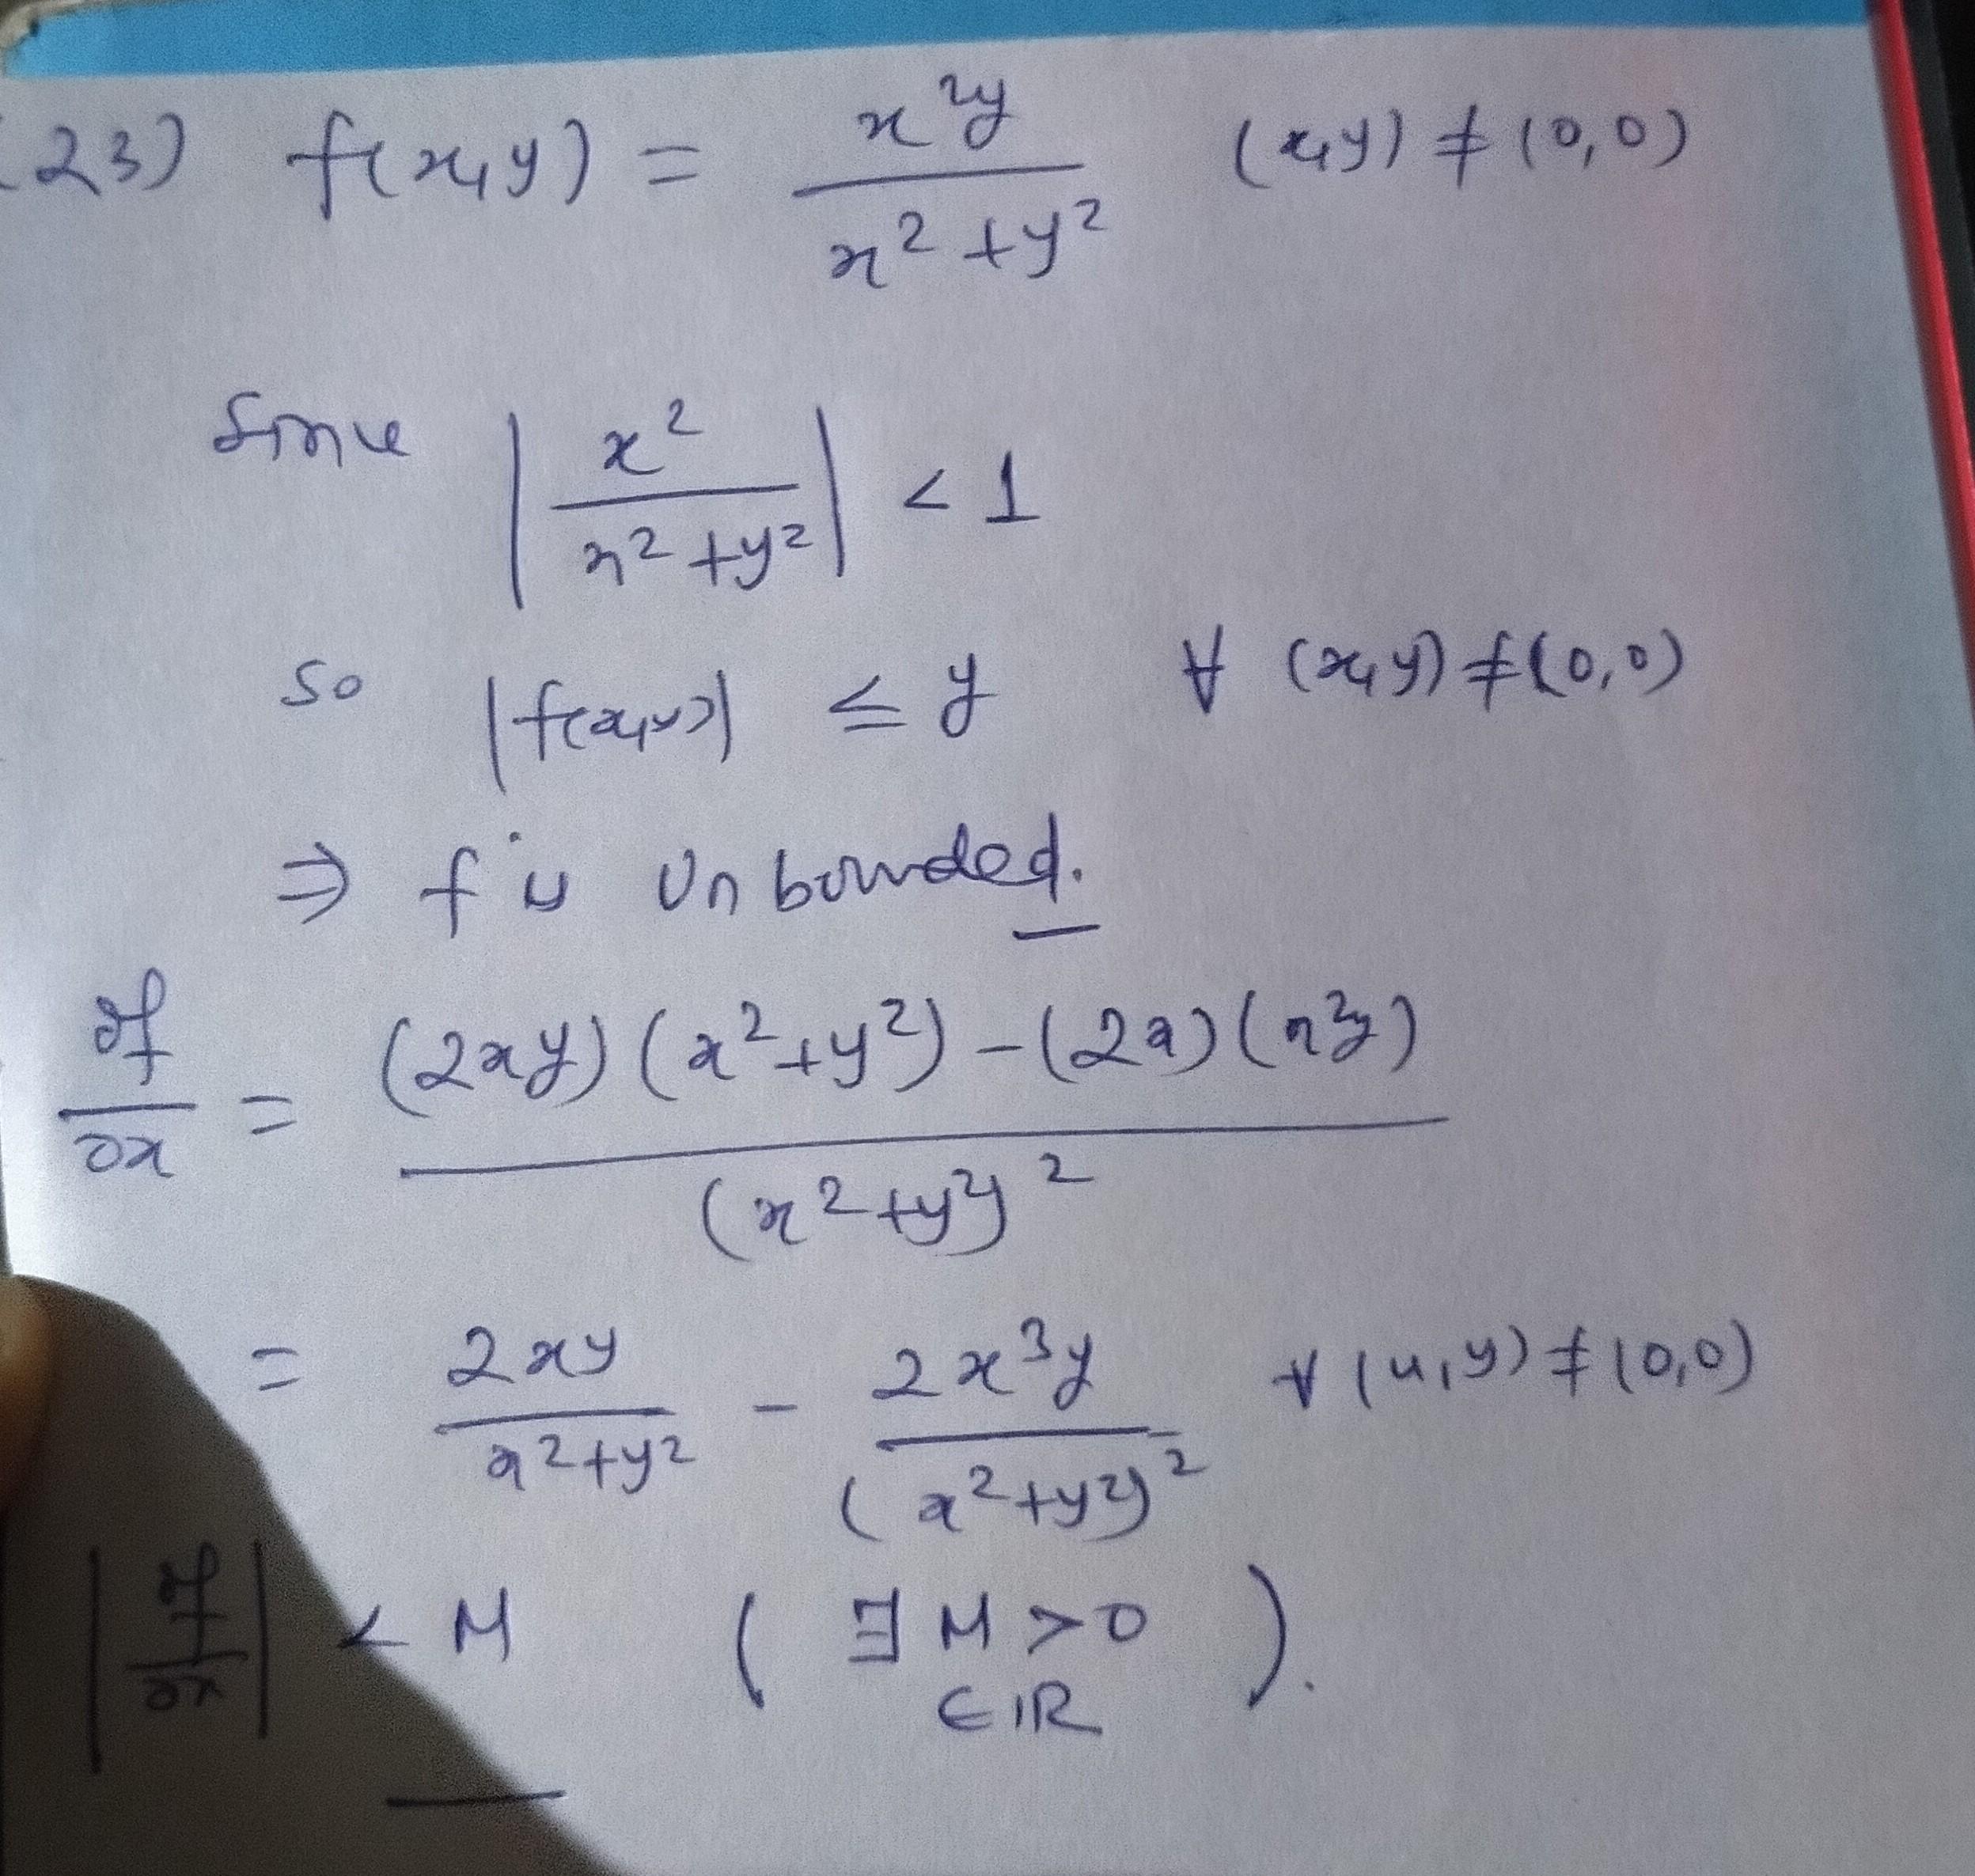 (23) f(x,y) = x²y / x²+y² (x,y) ≠ (0,0)
Since | x² / x²+y² | < 1
so |f(x,y)| ≤ y ∀ (x,y) ≠ (0,0)
⇒ f is Unbounded.
∂f/∂x = (2xy)(x²+y²) - (2x)(x²y) / (x²+y²)²
= 2xy / x²+y² - 2x³y / (x²+y²)² ∀ (x,y) ≠ (0,0)
|∂f/∂x| < M ( ∃ M > 0 ).
∈ ℝ